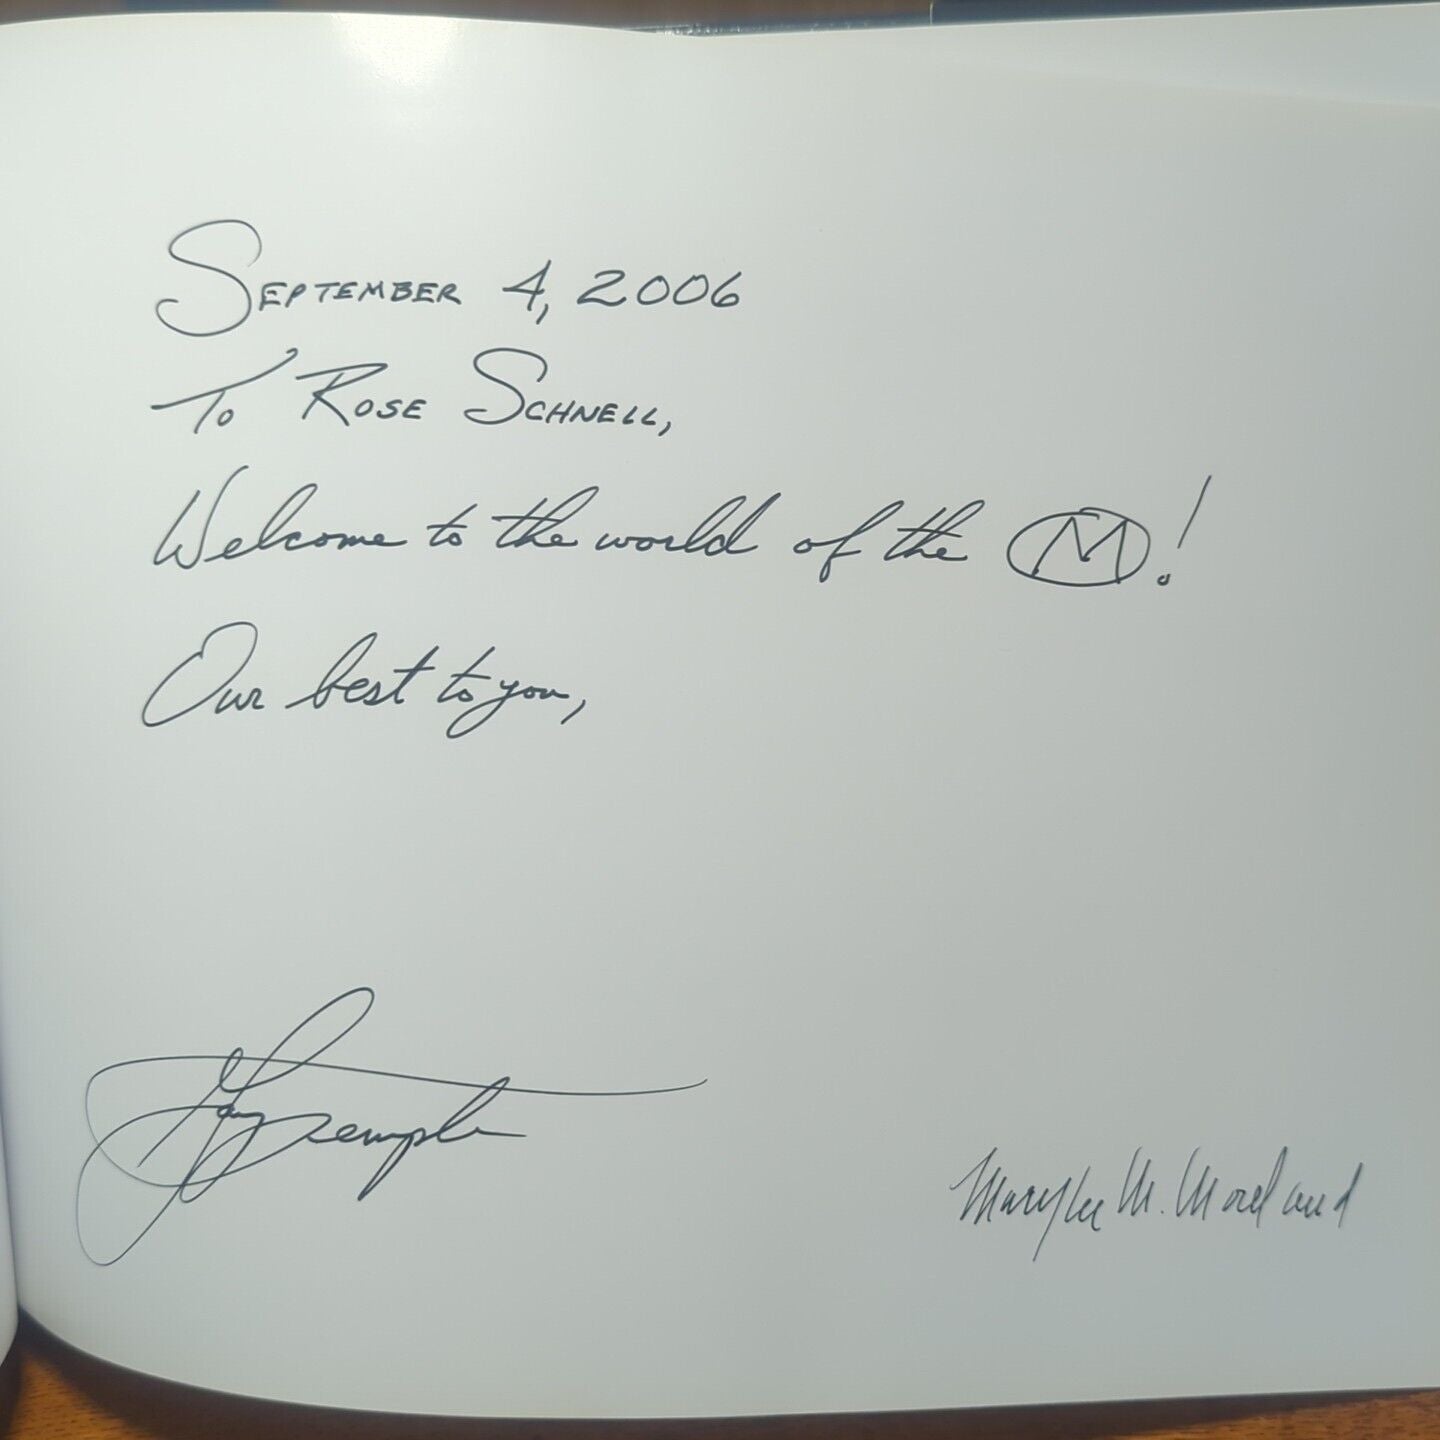 September 4, 2006
To Rose Schnell,
Welcome to the world of the M!
Our best to you,
Gary Temple
Marylee M. Moreland